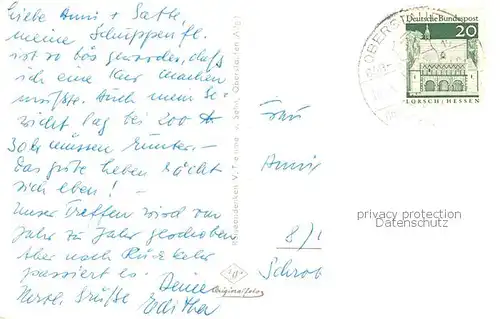 Liebe Anni + Sattl,
meine Schuppenfl.
ist so bös geworden, daß
ich eine Kur machen
mußte. Auch mein Ge-
wicht lag bei 200
30 müssen runter –
Das gute Leben rächt
sich eben! –
Unser Treffen wird von
Jahr zu Jahr geschoben
Aber nach Rückkehr
passiert es. Deine
Herzl. Grüße Editha
V. Trenino u. Sohn, Oberstaufen Allg.
Originalfoto
OBERSTAUFEN
Deutsche Bundespost
20
LORSCH/HESSEN
Frau
Anni
8/1
Schrob
privacy protection
Datenschutz